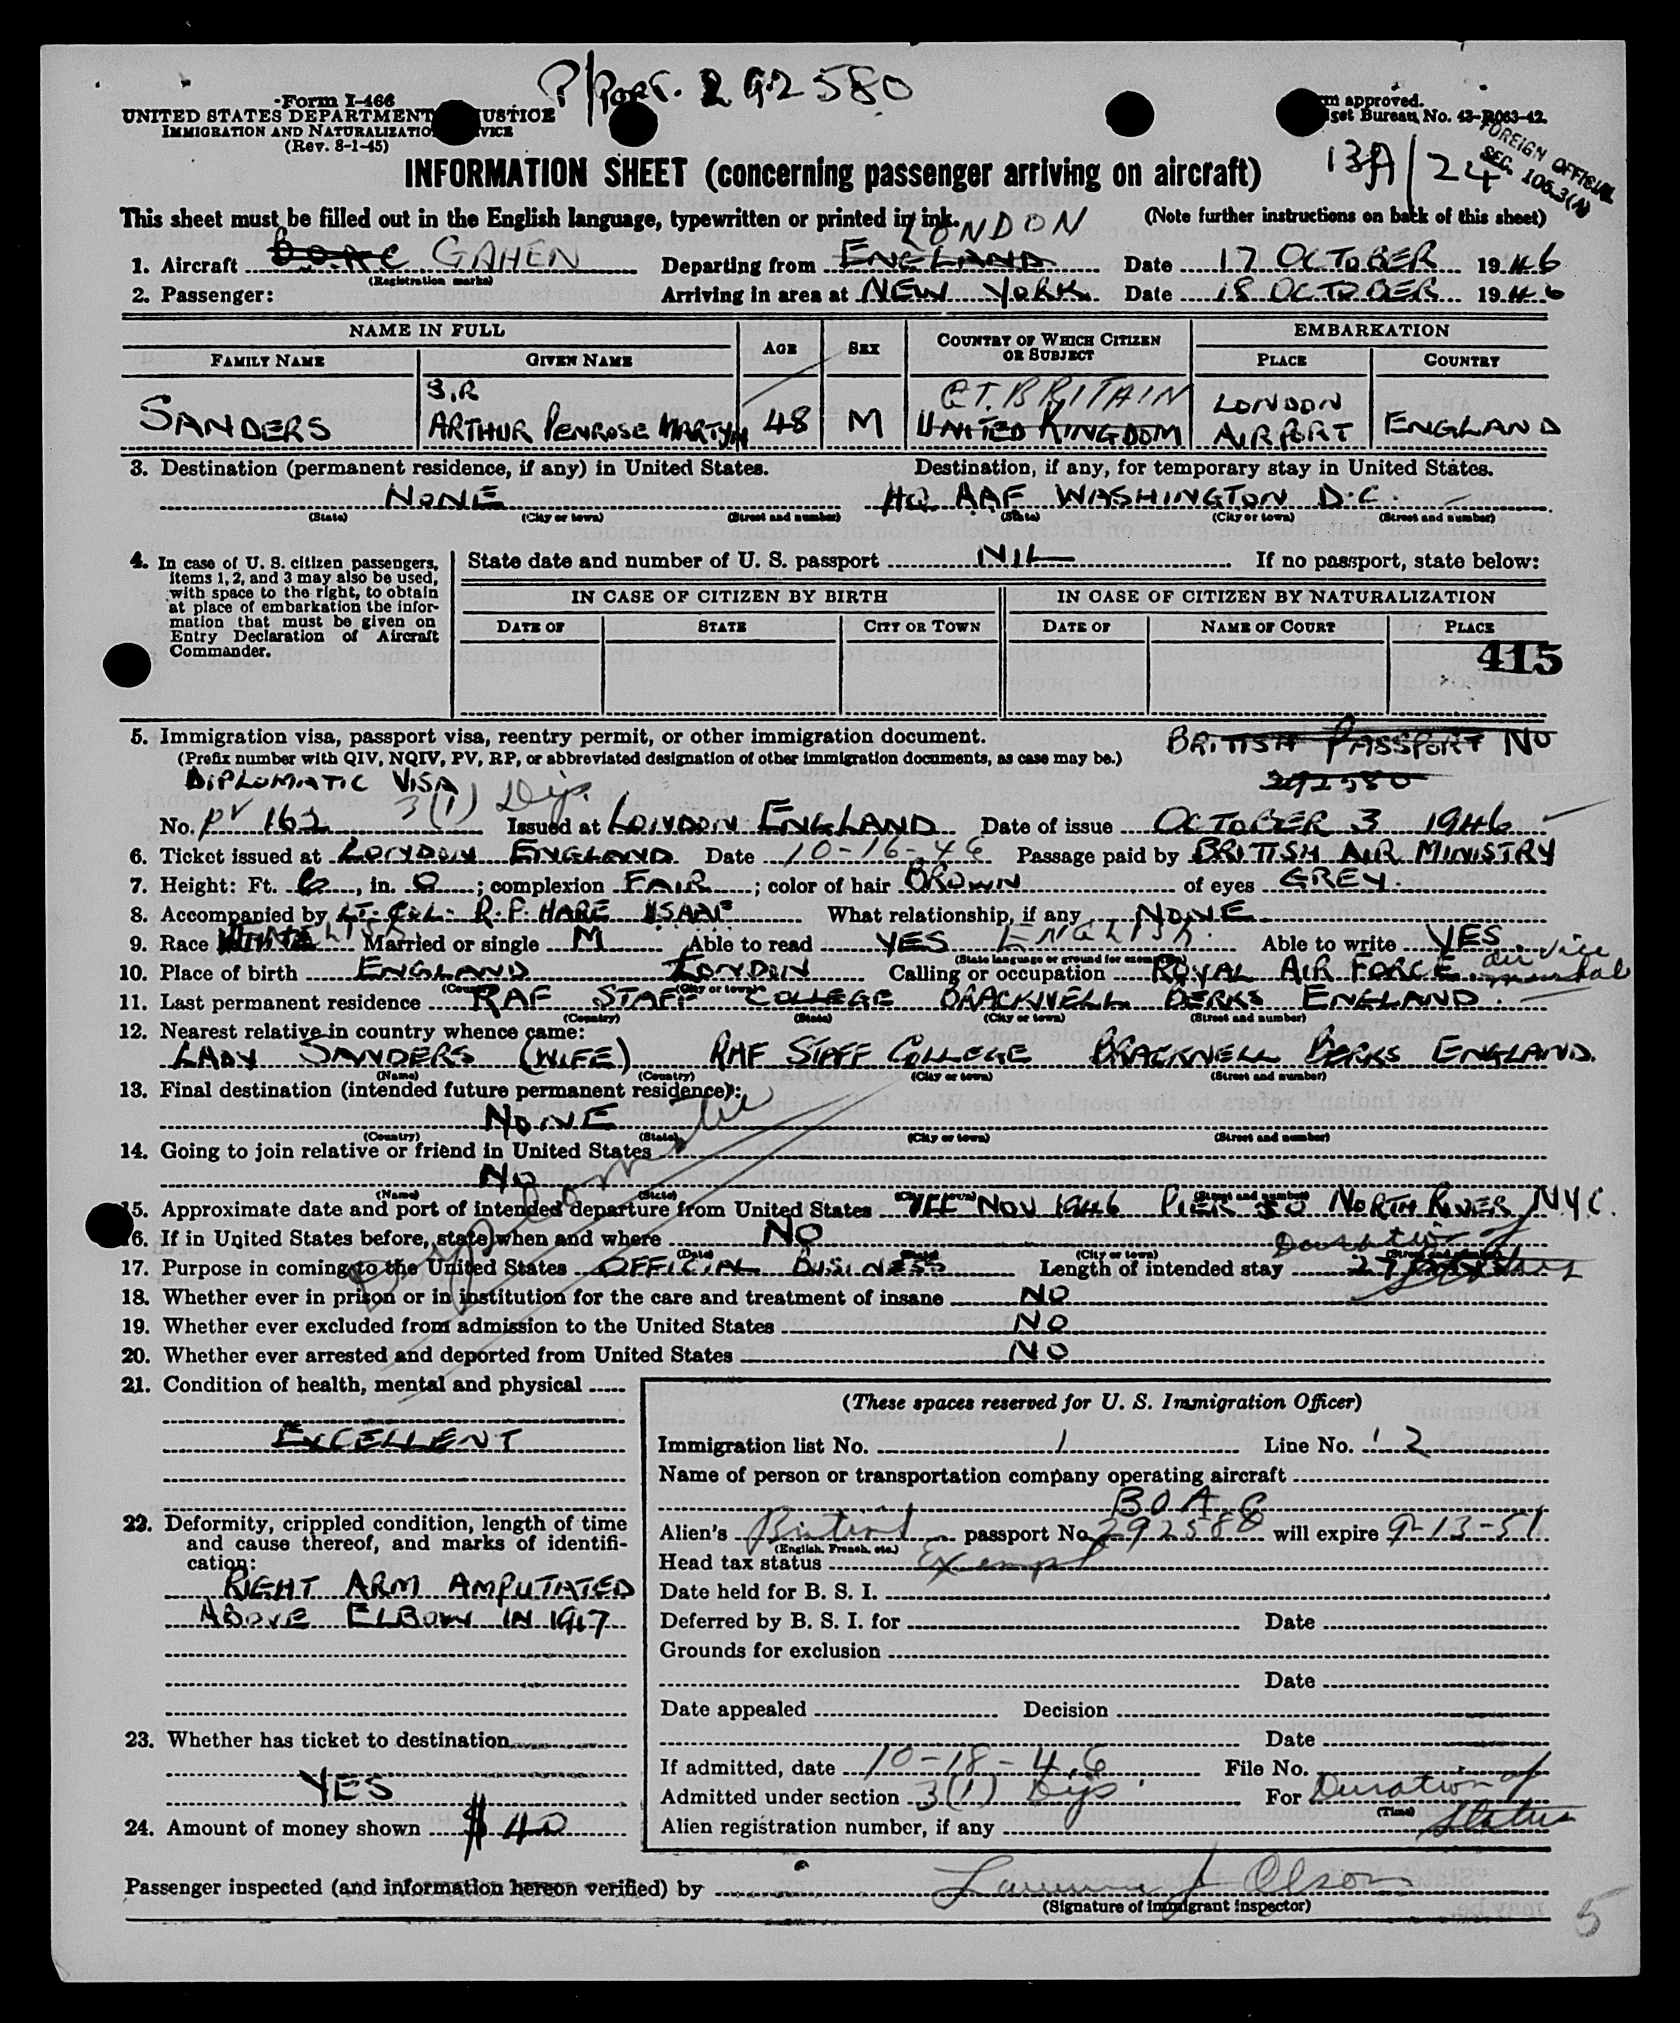 P/PORT. 292580
Form I-466
UNITED STATES DEPARTMENT JUSTICE
IMMIGRATION AND NATURALIZATION SERVICE
(Rev. 8-1-45)
Form approved.
Budget Bureau No. 43-R063-42.
FOREIGN OFFICIAL
SEC. 106.3(A)
13A/24
INFORMATION SHEET (concerning passenger arriving on aircraft)
This sheet must be filled out in the English language, typewritten or printed in ink.
(Note further instructions on back of this sheet)
LONDON
1. Aircraft BOAC GAHEN Departing from ENGLAND Date 17 OCTOBER 1946
(Registration marks)
2. Passenger: Arriving in area at NEW YORK Date 18 OCTOBER 1946
NAME IN FULL AGE SEX COUNTRY OF WHICH CITIZEN OR SUBJECT EMBARKATION
FAMILY NAME GIVEN NAME PLACE COUNTRY
SIR GT. BRITAIN LONDON
SANDERS ARTHUR PENROSE MARTYN 48 M UNITED KINGDOM AIRPORT ENGLAND
3. Destination (permanent residence, if any) in United States. Destination, if any, for temporary stay in United States.
NONE HQ AAF WASHINGTON D.C.
(State) (City or town) (Street and number) (State) (City or town) (Street and number)
4. In case of U. S. citizen passengers,
items 1, 2, and 3 may also be used,
with space to the right, to obtain
at place of embarkation the infor-
mation that must be given on
Entry Declaration of Aircraft
Commander.
State date and number of U. S. passport NIL If no passport, state below:
IN CASE OF CITIZEN BY BIRTH IN CASE OF CITIZEN BY NATURALIZATION
DATE OF STATE CITY OR TOWN DATE OF NAME OF COURT PLACE
415
5. Immigration visa, passport visa, reentry permit, or other immigration document. BRITISH PASSPORT NO
(Prefix number with QIV, NQIV, PV, RP, or abbreviated designation of other immigration documents, as case may be.)
292580
DIPLOMATIC VISA
No. PV 162 3(1) Dip. Issued at LONDON ENGLAND Date of issue OCTOBER 3 1946
6. Ticket issued at LONDON ENGLAND Date 10-16-46 Passage paid by BRITISH AIR MINISTRY
7. Height: Ft. 6, in. 0; complexion FAIR; color of hair BROWN of eyes GREY.
8. Accompanied by LT. COL. R.F. HARE USAAF What relationship, if any NONE
9. Race WHITE Married or single M Able to read YES English. Able to write YES
(State language or ground for exemption)
10. Place of birth ENGLAND LONDON Calling or occupation ROYAL AIR FORCE air vice marshal
(Country) (City or town)
11. Last permanent residence RAF STAFF COLLEGE BRACKNELL BERKS ENGLAND.
(Country) (State) (City or town) (Street and number)
12. Nearest relative in country whence came:
LADY SANDERS (WIFE) RAF STAFF COLLEGE BRACKNELL BERKS ENGLAND.
(Name) (Country) (City or town) (Street and number)
13. Final destination (intended future permanent residence):
NONE
(Country) (State) (City or town) (Street and number)
14. Going to join relative or friend in United States
NO
(Name) (State) (City or town) (Street and number)
Diplomatic
15. Approximate date and port of intended departure from United States 7TH NOV 1946 PIER 50 NORTH RIVER N.Y.C.
16. If in United States before, state when and where NO
(Date) (State) (City or town) (Street and number)
Duration of
17. Purpose in coming to the United States OFFICIAL BUSINESS Length of intended stay 27 DAYS Status
18. Whether ever in prison or in institution for the care and treatment of insane NO
19. Whether ever excluded from admission to the United States NO
20. Whether ever arrested and deported from United States NO
21. Condition of health, mental and physical
EXCELLENT
22. Deformity, crippled condition, length of time
and cause thereof, and marks of identifi-
cation:
RIGHT ARM AMPUTATED
ABOVE ELBOW IN 1917
23. Whether has ticket to destination
YES
24. Amount of money shown $40
(These spaces reserved for U. S. Immigration Officer)
Immigration list No. 1 Line No. 2
Name of person or transportation company operating aircraft
B O A C
Alien's British passport No. 292580 will expire 9-13-51
(English, French, etc.)
Head tax status Exempt
Date held for B. S. I.
Deferred by B. S. I. for Date
Grounds for exclusion
Date
Date appealed Decision
Date
If admitted, date 10-18-46 File No.
Admitted under section 3(1) Dip. For Duration of
(Time)
Status
Alien registration number, if any
Passenger inspected (and information hereon verified) by J Olson
(Signature of immigrant inspector)
5